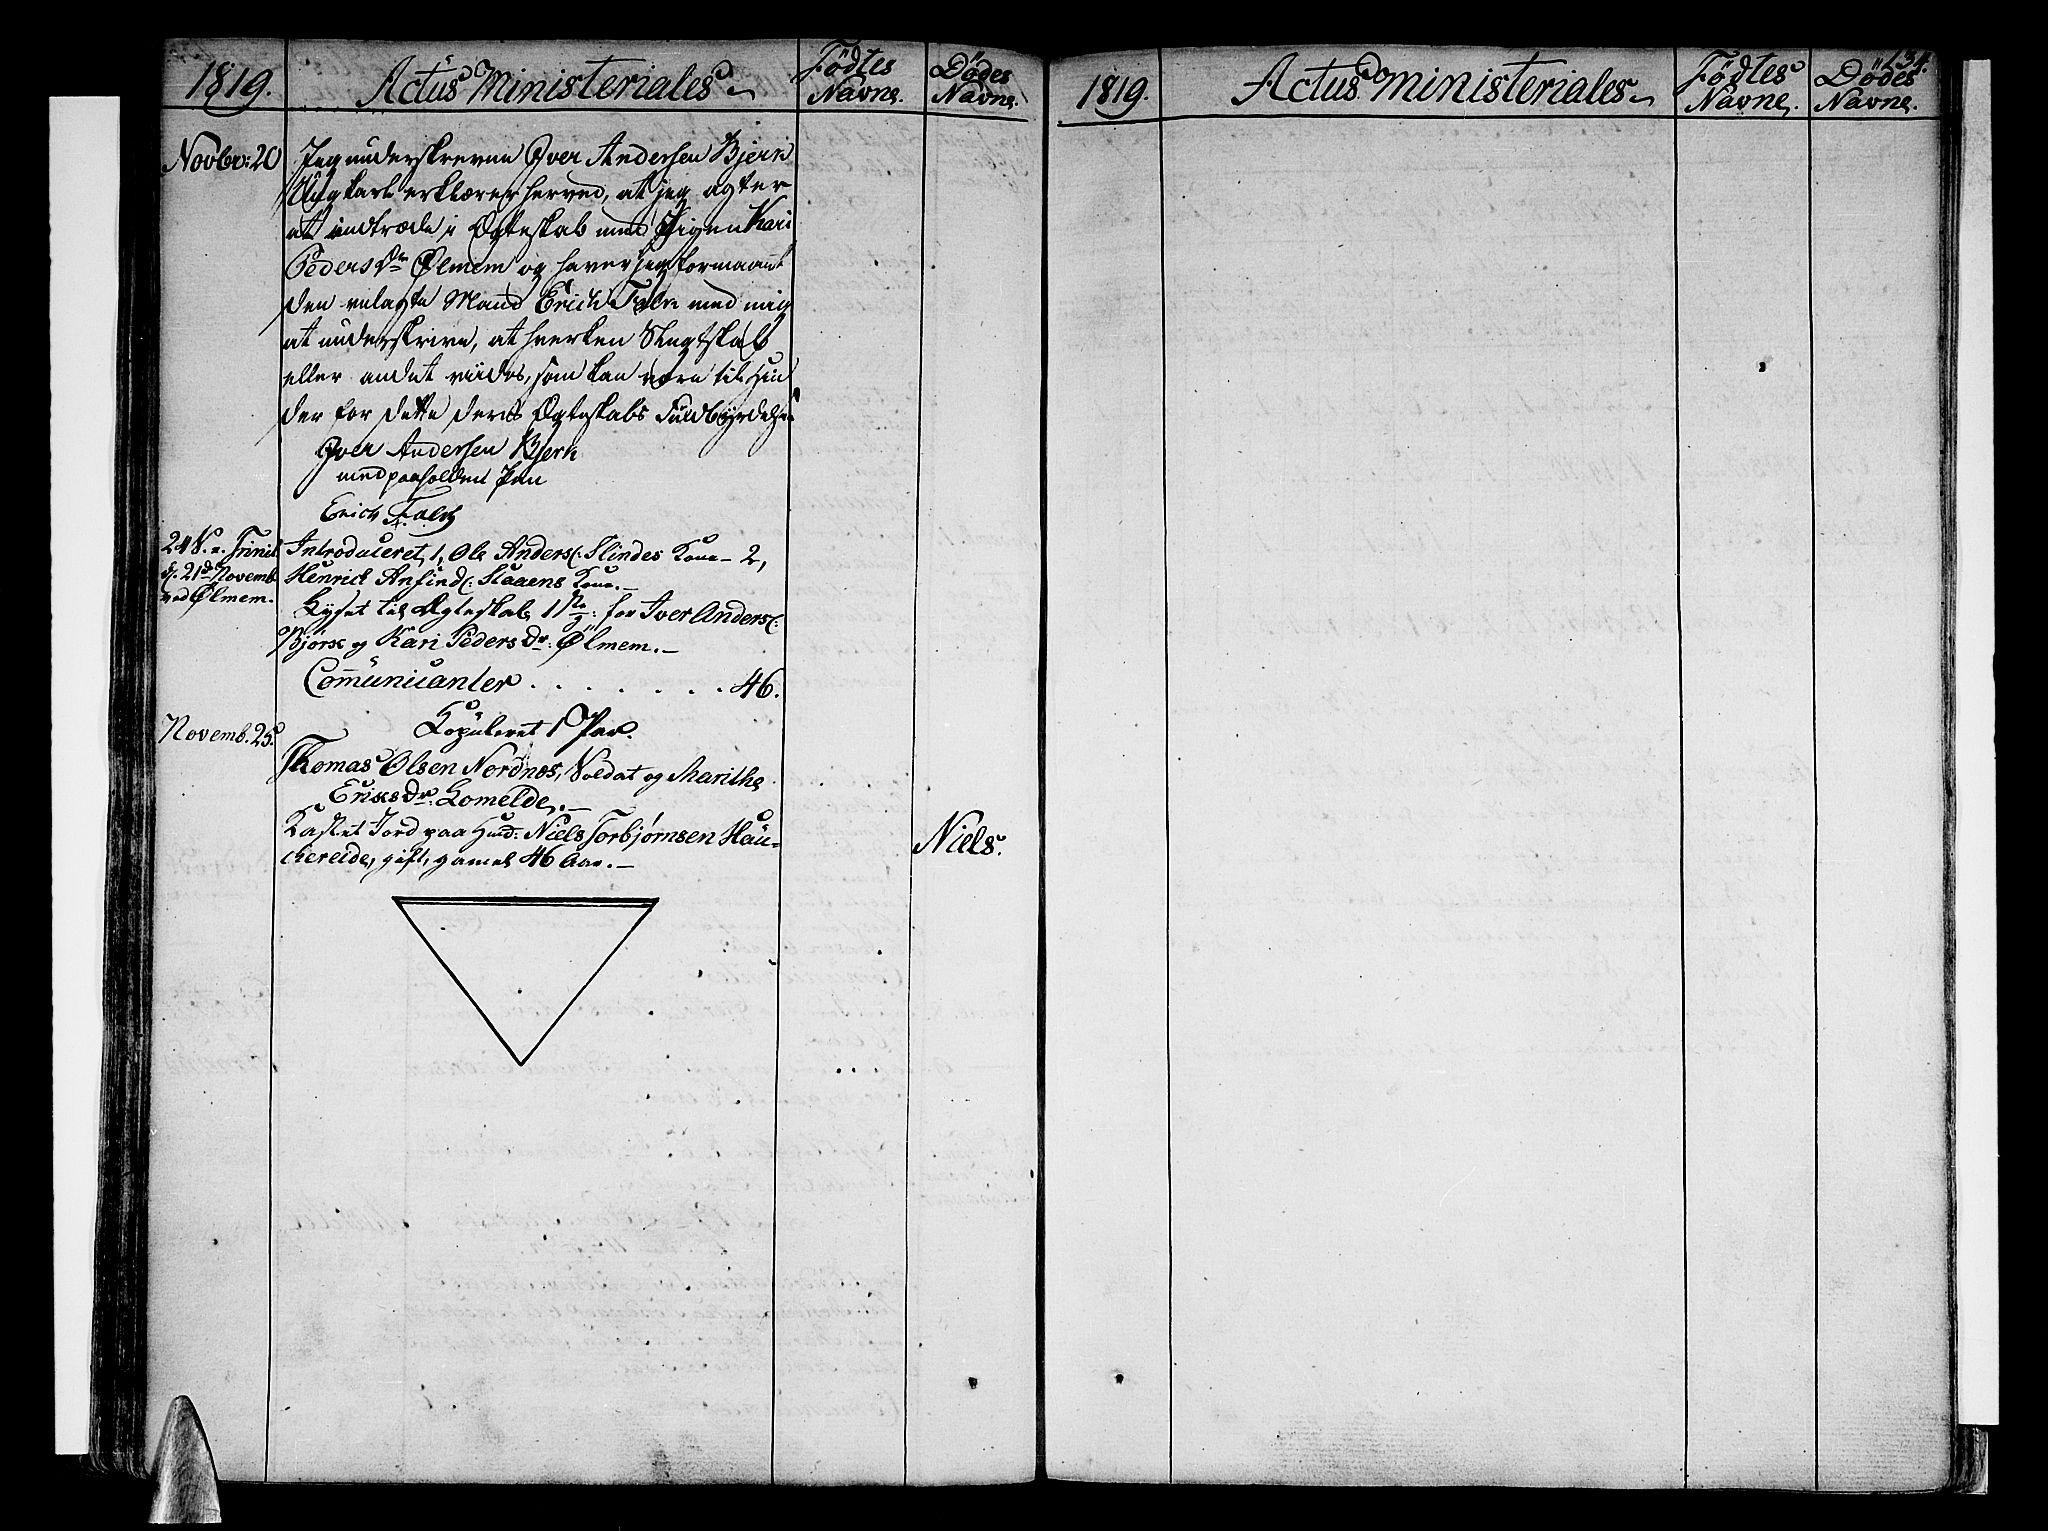 1819.
Actus Ministeriales
Födtes Navne.
Dödes Navne.
Novbr: 20
Jeg underskrevne Iver Andersen Bjerk
Ungkarl erklærer herved, at jeg agter
at indtræde i Ægteskab med Pigen Kari
Peders Dr Ølmem og haver jeg formaaet
den velagte Mand Erich Falck med mig
at underskrive, at hverken Slegtskab
eller andet viides, som kan være til Hin
der for dette deres Ægteskabs Fuldbyrdelse
Iver Andersen Bjerk
med paaholden Pen
Erich Falch
24 S. e. Trinit.
d. 21de Novemb.
ved Ølmem.
Introduceret 1, Ole Anders: Slindes Kone – 2,
Henrick Anfind: Staaens Kone. –
Lyset til Ægteskab 1 for Iver Anders:
Bjørk og Kari Peders Dr: Ølmem. –
Com̄unicanter . . . . . . . 46.
Novemb. 25.
Kopuleret 1 Par.
Thomas Olsen Nordnes, Soldat og Marithe
Eriks Dr: Lomelde. –
Kastet Jord paa Huusm: Niels Torbjørnsen Hau-
chereide, gift, gamel 46 Aar. –
Niels.
134.
1819.
Actus Ministeriales
Födtes Navne.
Dödes Navne.